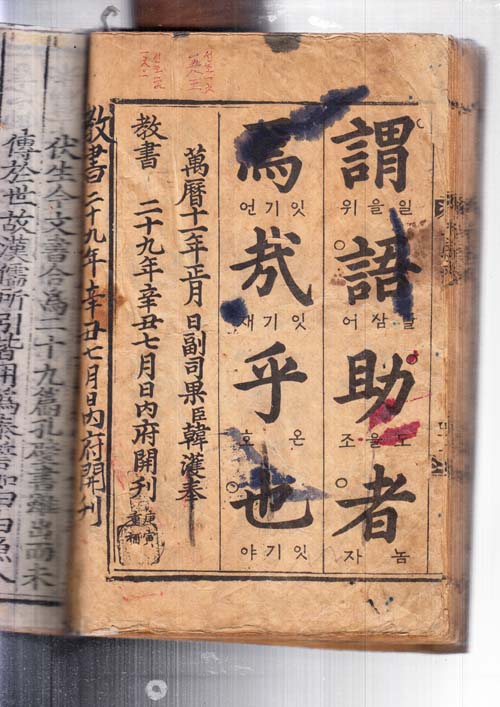 謂
일을위
語
말삼어
助
도을조
者
놈자
焉
잇기언
哉
잇기재
乎
온호
也
잇기야
萬曆十一年正月 日副司果臣韓濩奉
教書 二十九年辛丑七月日內府開刊
庚寅
重補
教書 二十九年辛丑七月日內府開刊
伏生今文書合爲二十九篇孔壁書雖出而未
傳於世故漢儒所引皆用爲泰誓如曰白魚入